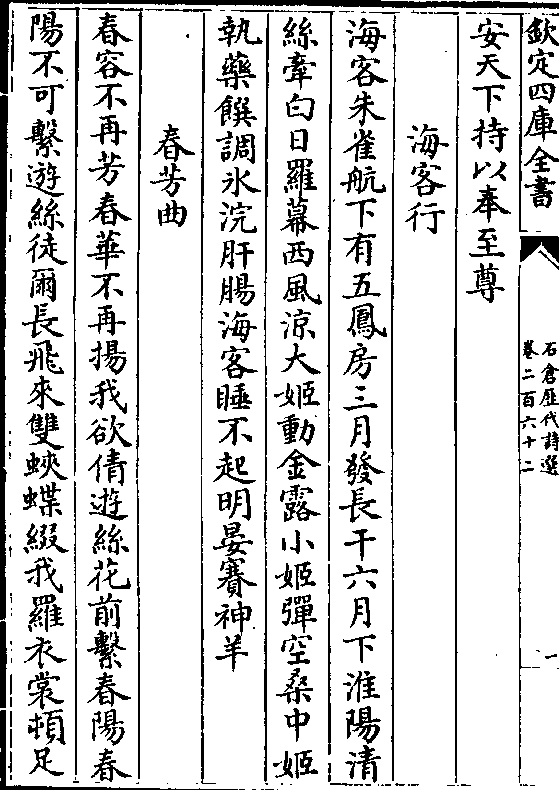 欽定四庫全書
石倉歴代詩選
卷二百六十二
一
安天下持以奉至尊
海客行
海客朱雀航下有五鳳房三月發長干六月下淮陽清
絲牽白日羅幕西風涼大姬動金露小姬彈空桑中姬
執藥饌調氷浣肝腸海客睡不起明晏賽神羊
春芳曲
春容不再芳春華不再揚我欲倩遊絲花前繫春陽春
陽不可繫遊絲徒爾長飛來雙蛺蝶綴我羅衣裳頓足